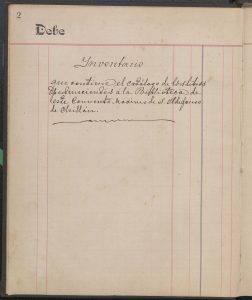 2
Debe
Inventario
que contiene el catálogo de los libros
pertenecientes a la Biblioteca de
este Convento Máximo de S. Ildefonso
de Chillán.